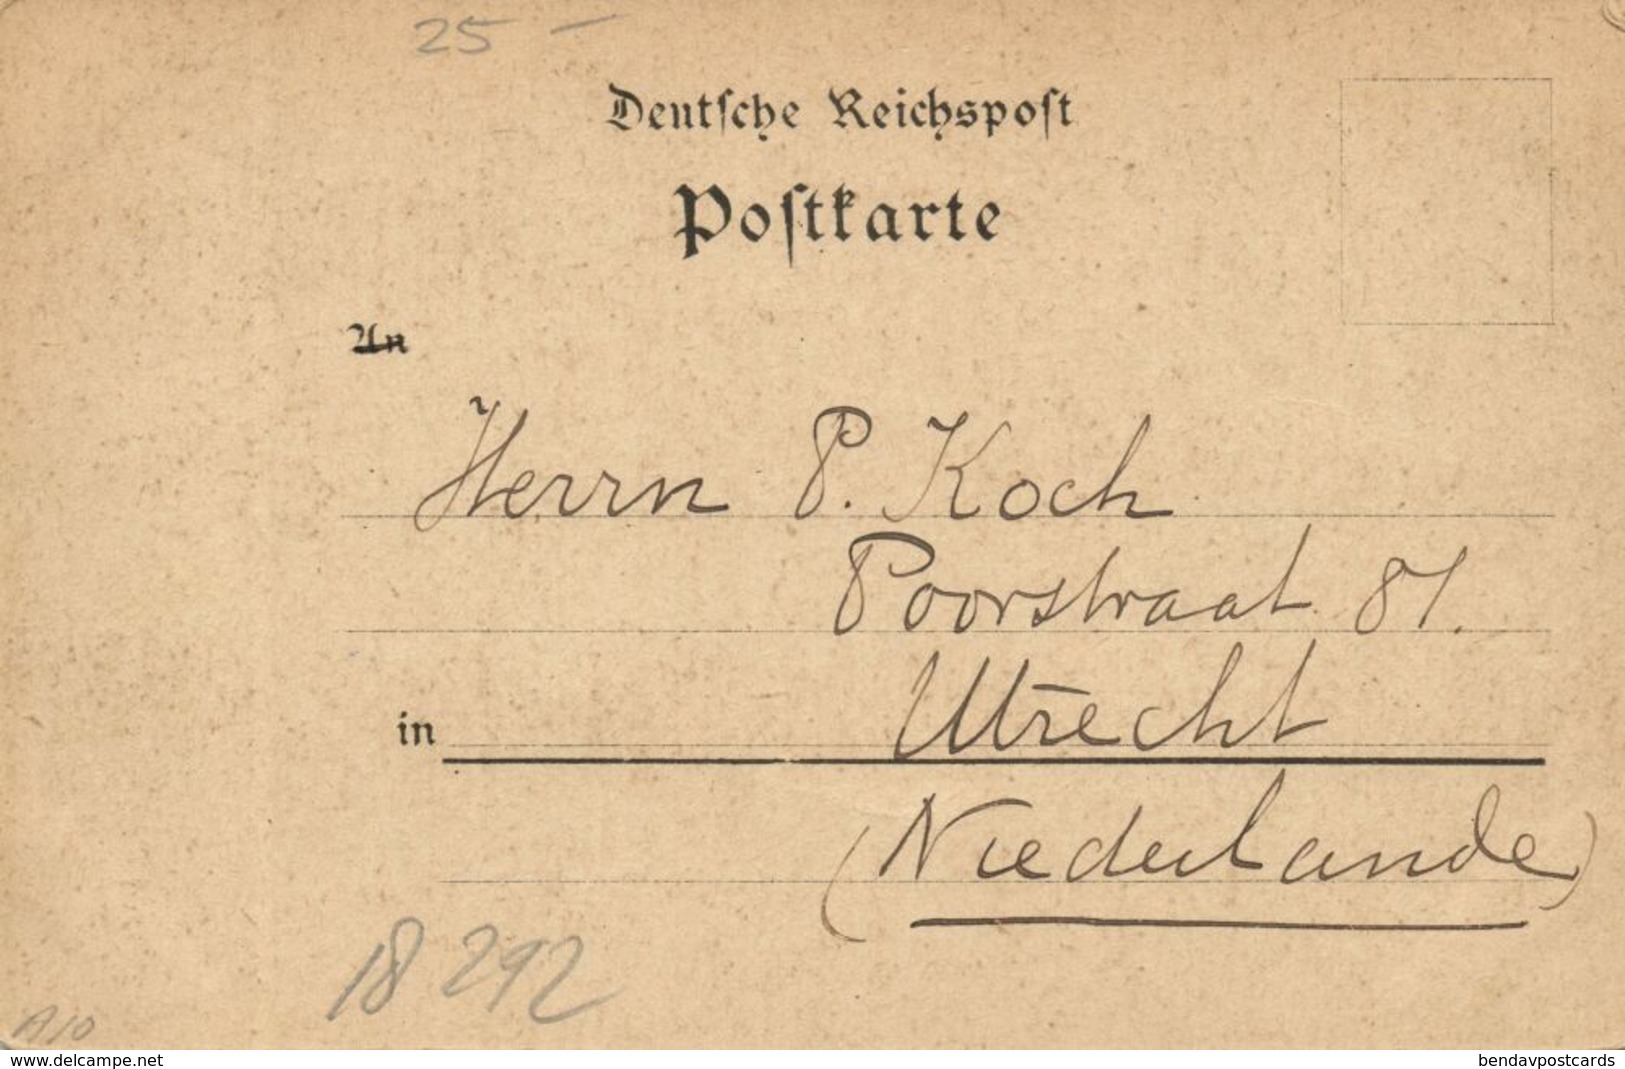 25 –
Deutſche Reichspoſt
Poſtkarte
An
Herrn P. Koch
Poorstraat 81.
in Utrecht
(Niederlande)
18 292
A10
www.delcampe.net
bendavpostcards